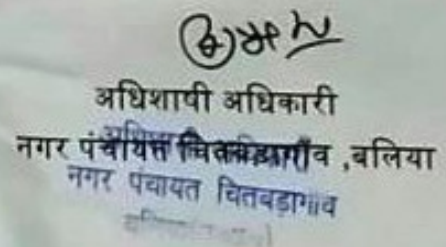 अधिशाषी अधिकारी
नगर पंचायत चितबड़ागाँव ,बलिया
नगर पंचायत चितबड़ागांव